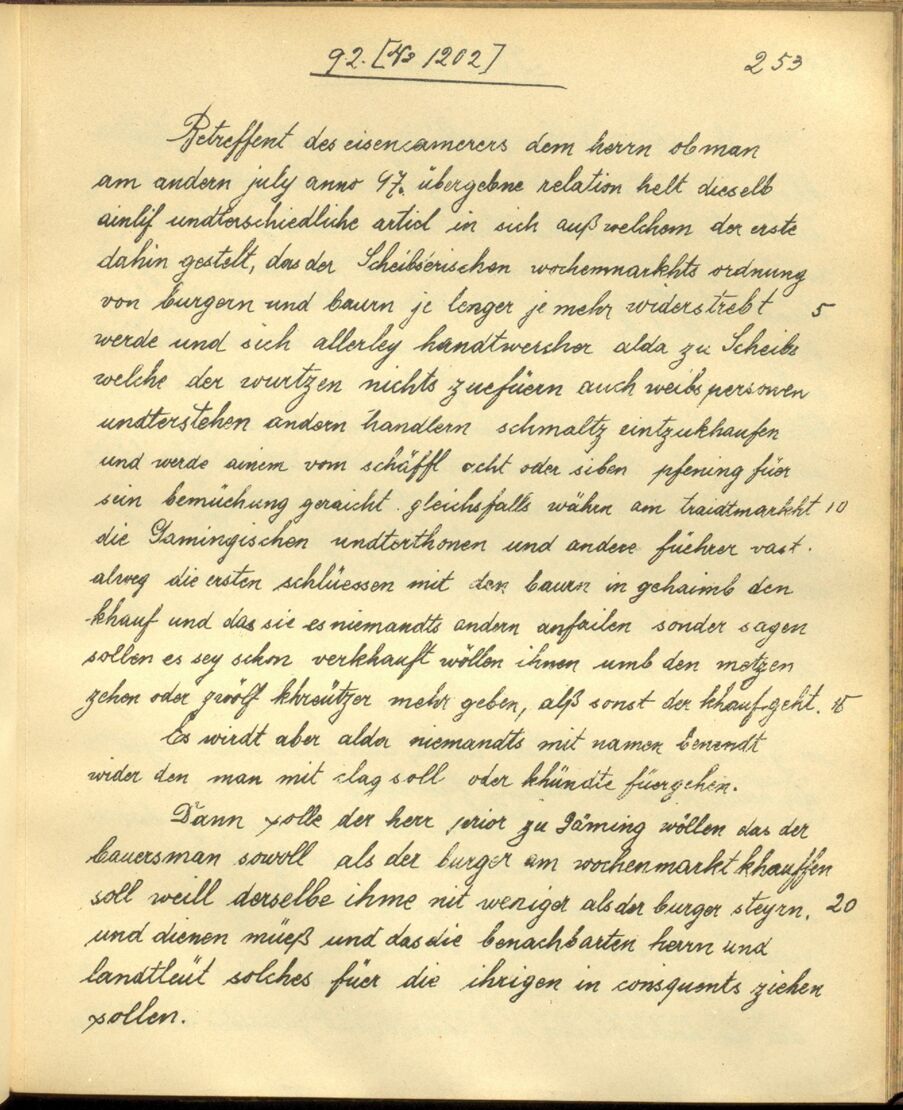 92. [№ 1202]
253
Betreffent des eisencamerers dem herrn obman
am andern july anno 47. übergebne relation helt dieselb
ainlif undterschiedliche articl in sich auß welchem der erste
dahin gestelt, das der Scheibserischen wochenmarkhts ordnung
von burgern und baurn je lenger je mehr widerstrebt 5
werde und sich allerley handtwercher alda zu Scheibs
welche der wurtzen nichts zuefüern auch weibspersonen
undterstehen andern handlern schmaltz eintzukhaufen
und werde ainem vom schäffl acht oder siben pfening für
sein bemüchung geraicht. gleichsfalls währn am traidtmarkht 10
die Gamingischen undterthonen und andere füehrer vast.
alweg die ersten schlüessen mit den baurn in gehaimb den
khauf und das sie es niemandts andern anfailen sonder sagen
sollen es sey schon verkhauft wöllen ihnen umb den metzen
zehen oder zwölf khreützer mehr geben, alß sonst der khauf geht. 15
Es wirdt aber alda niemandts mit namen benendt
wider den man mit clag soll oder khündte füergehen.
Dann solle der herr prior zu Gäming wöllen das der
bauersman sowoll als der burger am wochenmarkt khauffen
soll weill derselbe ihme nit weniger als der burger steyrn, 20
und dienen müeß und das die benachbarten herrn und
landtleüt solches füer die ihrigen in consquents ziehen
sollen.